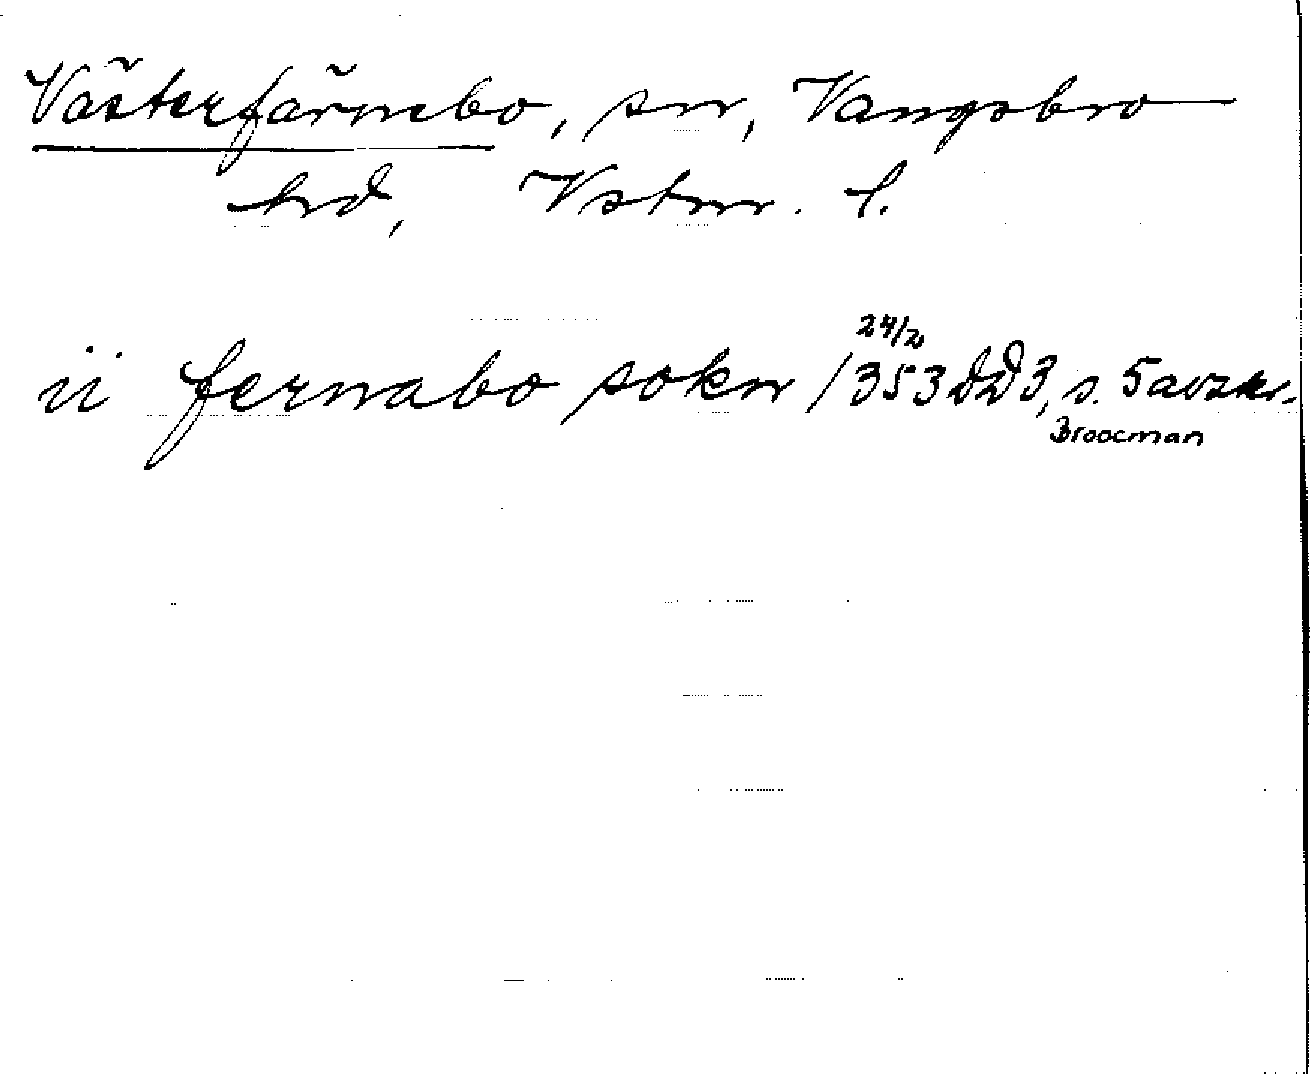 Västerfärnebo, sn, Vangsbro
hd, Vstm. l.
ii fernabo sokn 24/2 1353 DD3, s. 5 avskr.
Broocman